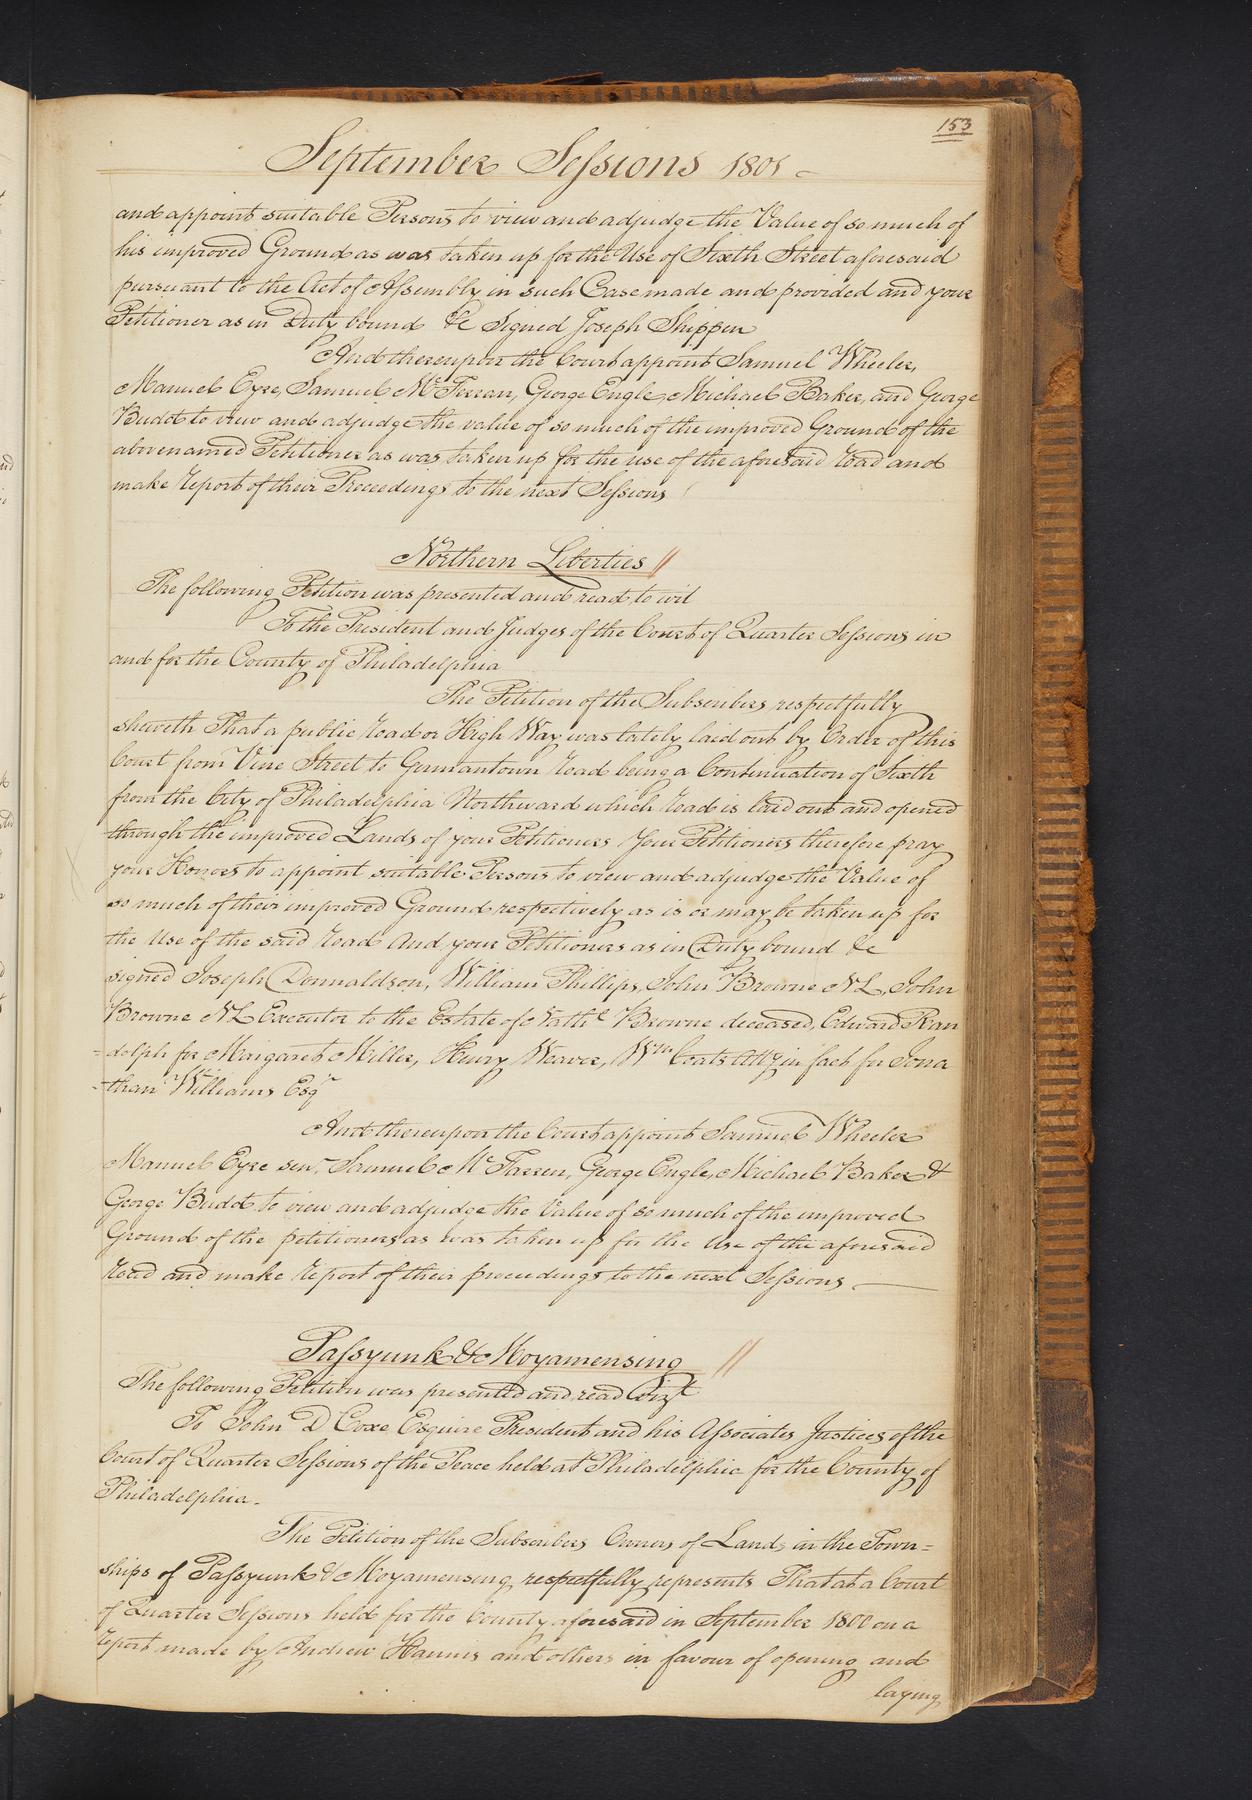 153
September Sessions 1801
and appoint suitable Persons to view and adjudge the Value of so much of
his improved Ground as was taken up for the Use of Sixth Street aforesaid
pursuant to the Act of Assembly in such Case made and provided and your
Petitioner as in Duty bound &c Signed Joseph Shippen
And thereupon the Court appoint Samuel Wheeler,
Manuel Eyre, Samuel McFerran, George Engle, Michael Baker, and George
Budd to view and adjudge the value of so much of the improved Ground of the
abovenamed Petitioner as was taken up for the use of the aforesaid road and
make report of their Proceedings to the next Sessions
Northern Liberties //
The following Petition was presented and read, to wit
To the President and Judges of the Court of Quarter Sessions in
and for the County of Philadelphia
The Petition of the Subscribers respectfully
sheweth That a public road or High Way was lately laid out by Order of this
Court from Vine Street to Germantown road being a Continuation of Sixth
from the City of Philadelphia Northward which road is laid out and opened
through the improved Lands of your Petitioners Your Petitioners therefore pray
your Honors to appoint suitable Persons to view and adjudge the Value of
so much of their improved Ground respectively as is or may be taken up for
the Use of the said road And your Petitioners as in Duty bound &c
signed Joseph Donnaldson, William Phillips, John Browne NL, John
Browne NL Executor to the Estate of Nathl Browne deceased, Edward Ran
=dolph for Margaret Miller, Henry Weaver, Wm Coats Atty in fact for Jona
=than Williams Esqr
And thereupon the Court appoint Samuel Wheeler
Manuel Eyre senr Samuel McFarren, George Engle, Michael Baker &
George Budd to view and adjudge the Value of so much of the improved
Ground of the petitioners as was taken up for the use of the aforesaid
road and make report of their proceedings to the next Sessions
Passyunk & Moyamensing //
The following Petition was presented and read Vizt
To John D Coxe Esquire President and his Associates Justices of the
Court of Quarter Sessions of the Peace held at Philadelphia for the County of
Philadelphia
The Petition of the Subscribers Owners of Lands in the Town=
ships of Passyunk & Moyamensing respectfully represents That at a Court
of Quarter Sessions held for the County aforesaid in September 1800 on a
report made by Andrew Hannis and others in favour of opening and
laying